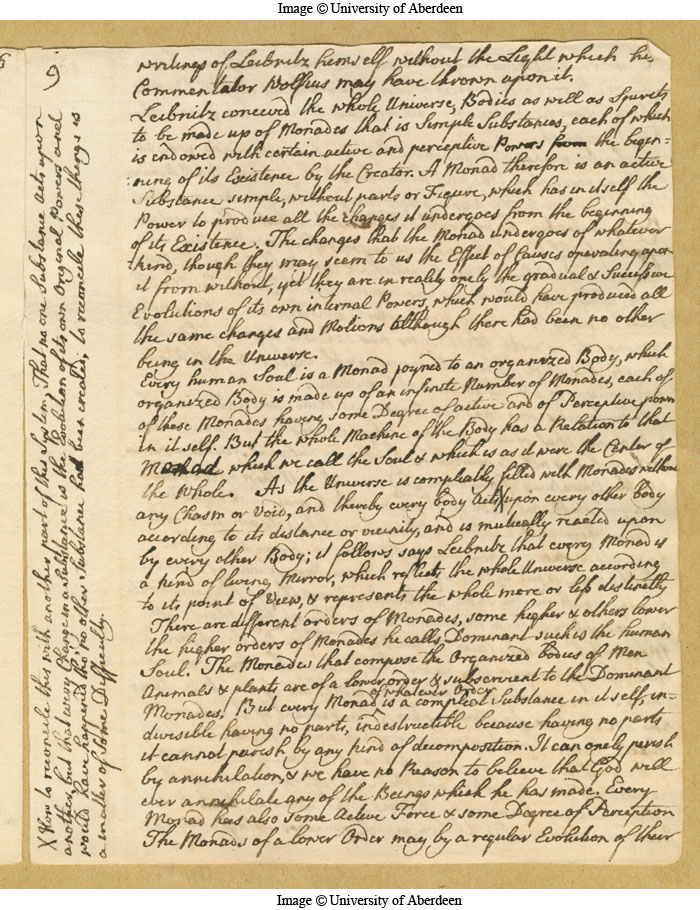 Image © University of Aberdeen
9
writings of Leibnitz himself without the Light which his
Commentator Wolfius may have thrown upon it.
Leibnitz conceived the whole Universe, Bodies as well as Spirits
to be made up of Monades that is Simple Substances, each of which
is indowed with certain active and perceptive Powers from the begin=
ning of its Existence by the Creator. A Monad therefore is an active
Substance simple, without parts or Figure, which has in itself the
Power to produce all the changes it undergoes from the beginning
of its Existence. The changes that the Monad undergoes of whatever
kind, though they may seem to us the Effect of Causes operating upon
it from without, yet they are in reality onely the gradual & Successive
Evolutions of its own internal Powers, which would have produced all
the same changes and Motions although there had been no other
being in the Universe.
Every human Soul is a Monad joyned to an organized Body, which
organized Body is made up of an infinite Number of Monades, each of
of these Monades having some Degree of active and of Perceptive power
in it self. But the whole Machine of the Body has a Relation to that
Monad which we call the Soul & which is as it were the Center of
the Whole. As the Universe is compleatly filled with Monades without
any Chasm or Void, and thereby every body acts X upon every other body
according to its distance or vicinity, and is mutually reacted upon
by every other Body; it follows says Leibnitz that every Monad is
a kind of living Mirror, which reflects the whole Universe according
to its point of View, & represents the whole more or less distinctly
There are different orders of Monades, some higher & others lower
the higher orders of Monades he calls Dominant such is the human
Soul. The Monades that compose the Organized bodies of Men
Animals & plants are of a lower order & subservient to the Dominant
Monades. But every Monad of whatever Order is a compleat Substance in it self, in=
divisible having no parts, indestructible because having no parts
it cannot perish by any kind of decomposition. It can onely perish
by annihilation, & we have no Reason to believe that God will
ever annihilate any of the Beings which he has made. Every
Monad has also some Active Force & some Degree of Perception
The Monads of a lower Order may by a regular Evolution of their
X How to reconcile this with another part of this System That no one Substance acts upon
another, but that every Change in a Substance is the Evolution of its own Original Powers and
would have happened tho no other Substance had been created, to reconcile these things is
a matter of some Difficulty.
Image © University of Aberdeen